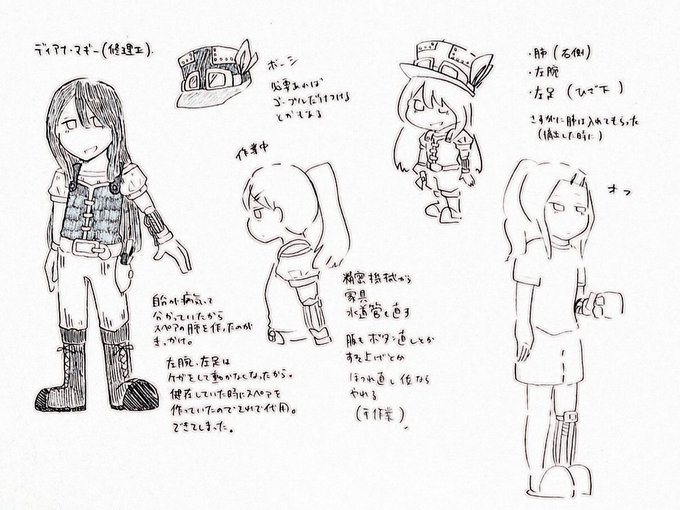 ディアナ・マギー(修理工).
ボーシ
必要あれば
ゴーグルだけつける
とかもある
・肺(右側)
・左腕
・左足(ひざ下)
さすがに肺は入れてもらった
(摘出した時に)
作業中
オフ
自分が病気って
分かっていたから
スペアの肺を作ったのが
きっかけ。
左腕、左足は
ケガをして動かなくなったから。
健在していた時にスペアを
作っていたのでそれで代用。
できてしまった。
精密機械から
家具
水道管も直す
服も ボタン直しとか
すそ上げとか
ほつれ直し位なら
やれる
(手作業)